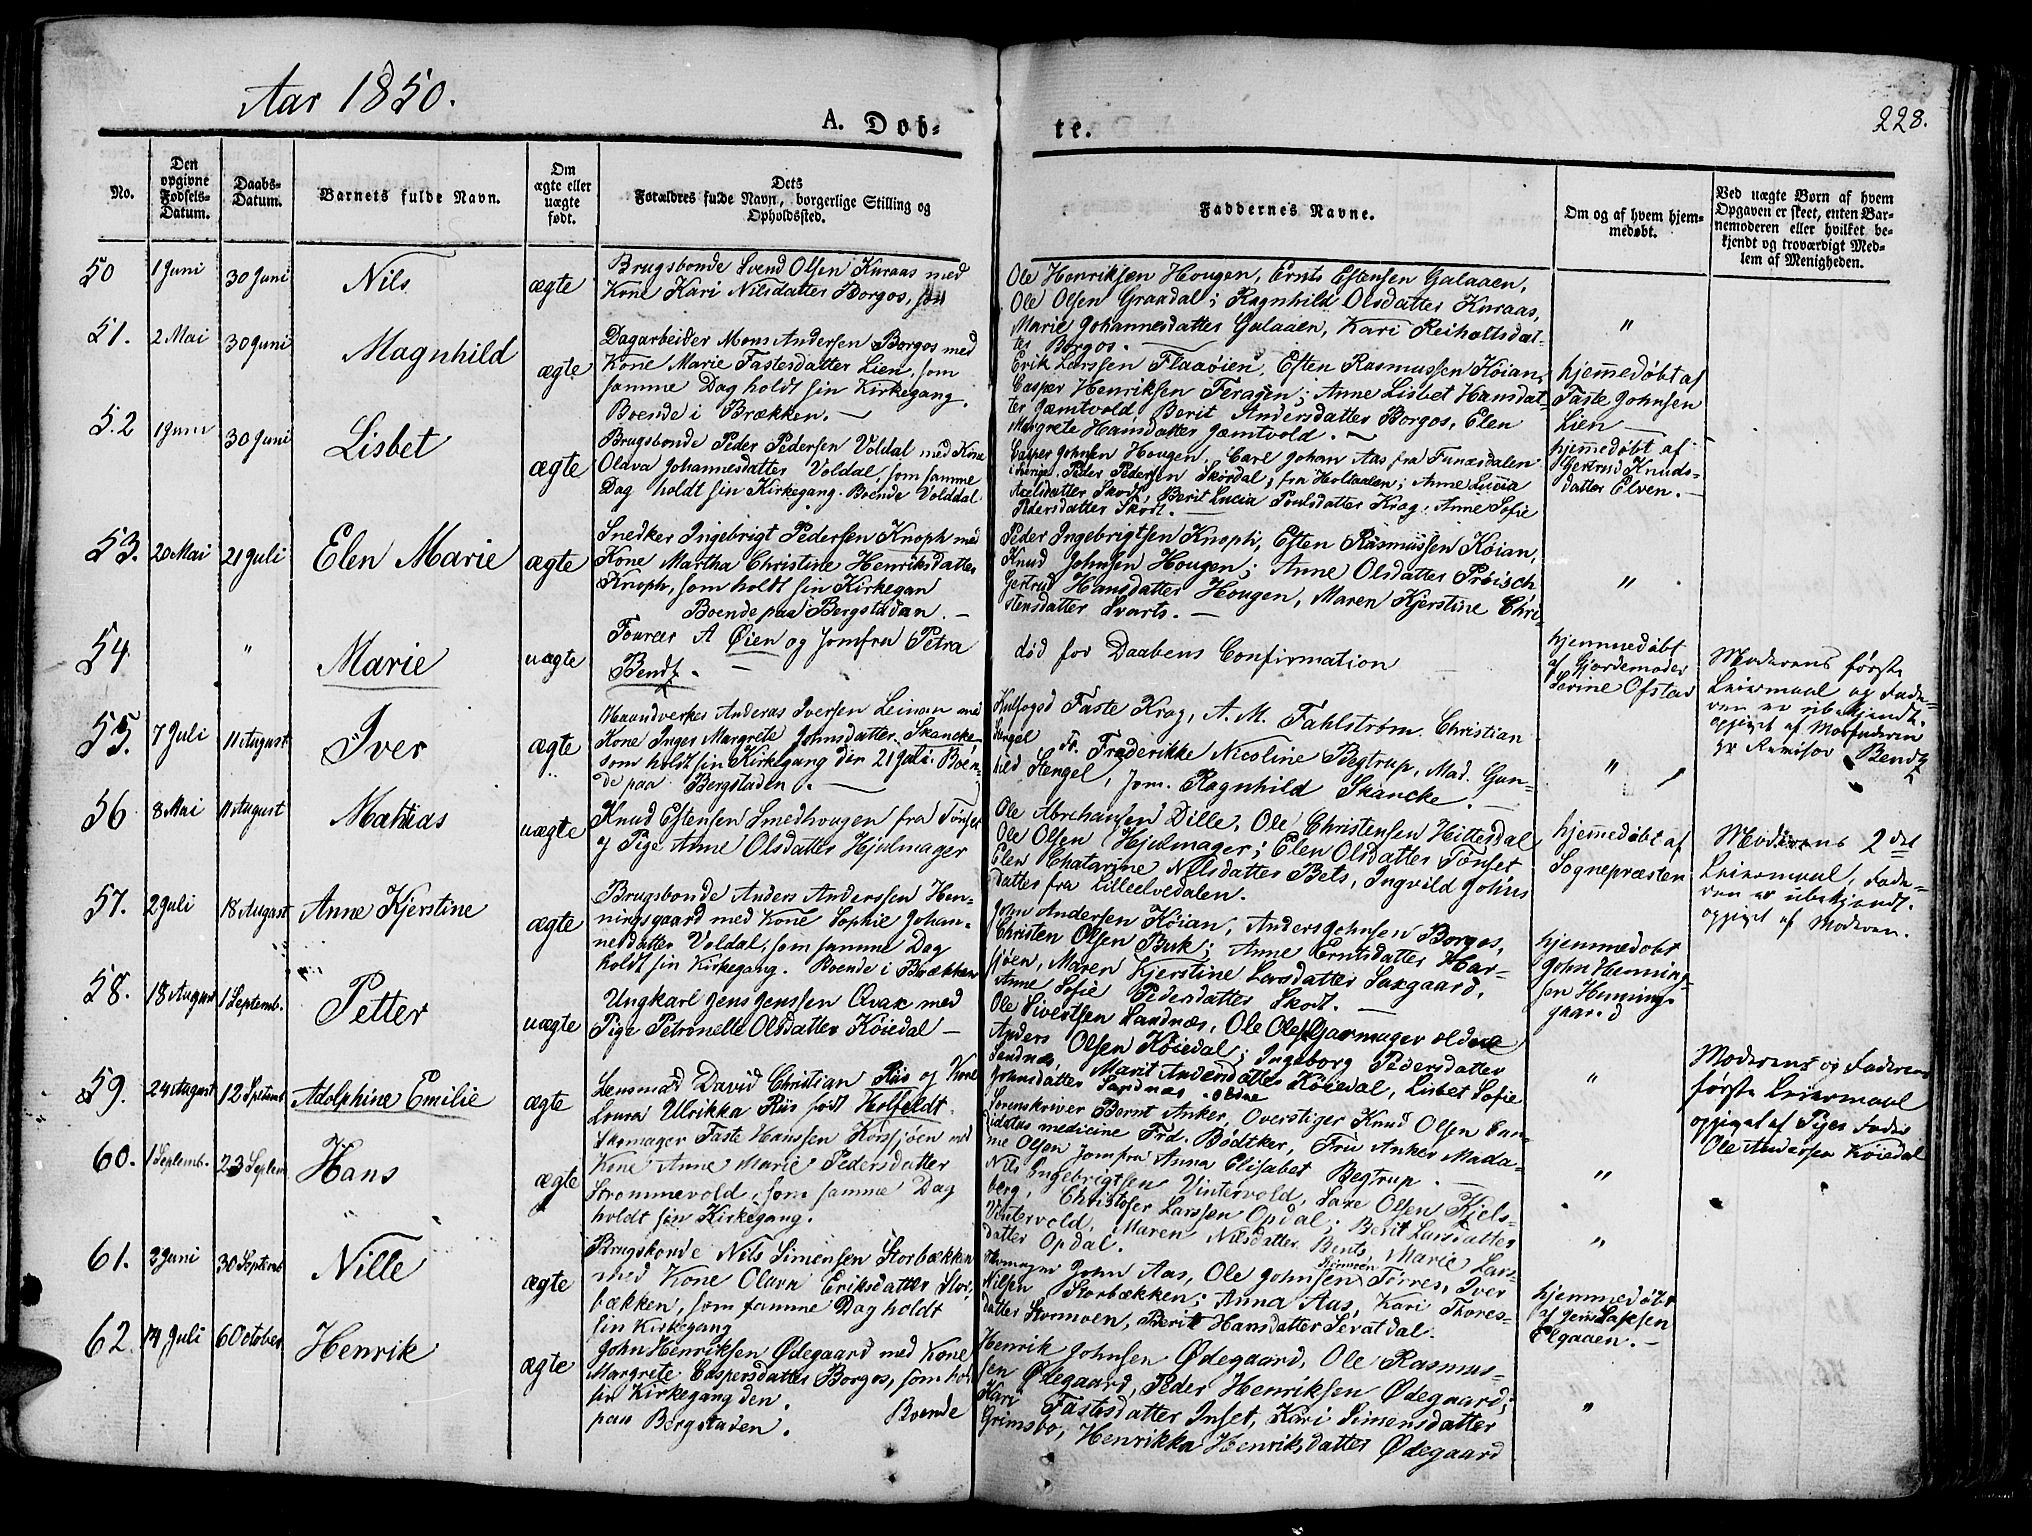 Aar 1850.
A. Døb-
te.
228.
No.
Den opgivne Fødsels-Datum.
Daabs-Datum.
Barnets fulde Navn.
Om ægte eller uægte født.
Dets Forældres fulde Navn, borgerlige Stilling og Opholdssted.
Faddernes Navne.
Om og af hvem hjem-
medøbt.
Ved uægte Børn af hvem
Opgaven er skeet, enten Bar-
nemoderen eller hvilket be-
kjendt og troværdigt Med-
lem af Menigheden.
50 1 Juni 30 Juni Nils ægte
Brugsbonde Svend Olsen Kuraas med
Kone Kari Nilsdatter Borgos,
Ole Henriksen Hougen, Ernts Estensen Galaaen,
Ole Olsen Graadal; Ragnhild Olsdatter Kuraas,
Marie Johannesdatter Galaaen, Kari Reiholtsdat-
ter Borgos. —
"
51. 2 Mai 30 Juni Magnhild ægte
Dagarbeider Mons Andersen Borgos med
Kone Marie Fastesdatter Lien, som
samme Dag holdt sin Kirkegang.
Boende i Brækken. —
Erik Larssen Flaaøien, Esten Rasmussen Køian,
Casper Henriksen Feragen; Anne Lisbet Hansdat-
ter Jæmtvold Berit Andersdatter Borgos, Elen
Margrete Hansdatter Jæmtvold. —
hjemmedøbt af
Faste Johnsen
Lien —
52 1 Juni 30 Juni Lisbet ægte
Brugsbonde Peder Pedersen Voldal med Kone
Oldva Johannesdatter Voldal, som samme
Dag holdt sin Kirkegang. Boende Volddal
Casper Johnsen Hougen, Carl Johan Aas fra Funæsdalen
Peder Pedersen Skordal, fra Holtaalen; Anne Lucia
Axelsdatter Skodt, Berit Lucia Poulsdatter Krag, Anne Sofie
Pedersdatter Skodt. —
hjemmedøbt af
Gertrud Knuds-
datter Elven. —
53. 20 Mai 21 Juli Elen Marie ægte
Snedker Ingebrigt Pedersen Knoph med
Kone Martha Christine Henriksdatter
Knoph, som holdt sin Kirkegan
Boende paa Bergstadan. —
Peder Ingebrigtsen Knoph, Esten Rasmussen Køian,
Knud Johnsen Hougen; Anne Olsdatter Prøisch
Gertrud Hansdatter Hougen, Maren Kjerstine Chri-
stensdatter Svarts. —
"
54 " Marie uægte
Fourer A Øien og Jomfru Petra
Bendz. —
død for Daabens Confirmation
hjemmedøbt
af Gjordemoder
Serine Ofstad
Moderens første
Leiermaal og Fade-
ren er ubekjendt.
opgivet af Morfaderen
Revisor Bendz
55. 7 Juli 11 August Iver ægte
Haandverker Andreas Iversen Leinan med
Kone Inger Margrete Johnsdatter Skancke
som holdt sin Kirkegang den 21 Juli. Boen-
de paa Bergstaden. —
Hulfogd Faste Krog, A. M. Fahlstrøm. Christian
Stengel Fr. Frederikke Nicoline Begtrup, Mad. Gun-
hild Stengel, Jom. Ragnhild Skancke. —
"
56 8 Mai 11 August Mathias uægte
Knud Estensen Smedhougen fra Tønset
og Pige Anne Olsdatter Hjulmager
Ole Abrahamsen Dille, Ole Christensen Hittesdal
Ole Olsen Hjulmager; Elen Olsdatter Tønset
Elen Chatarine Nilsdatter Bets, Ingvild Johns
datter fra Lilleelvedalen.
hjemmedøbt af
Sognepræsten
Moderens 2det
Leiermaal, Fade-
ren er ubekjendt.
opgivet af Moderen.
57. 2 Juli 18 August Anne Kjerstine ægte
Brugsbonde Anders Anderssen Hen-
ningsgaard med Kone Sophie Johan-
nesdatter Voldal, som samme Dag
holdt sin Kirkegang. Boende i Brækken
John Andersen Køian, Anders Johnsen Borgos,
Christen Olsen Buk; Anne Erntsdatter Har-
sjøen, Maren Kjerstine Larsdatter Saxgaard,
Anne Sofie Pedersdatter Skodt. —
hjemmedøbt
John Henning-
sen Henning-
gaard
58. 18 August 1 Septemb. Petter uægte
Ungkarl Jens Jenssen Qvar med
Pige Petronelle Olsdatter Køiedal —
Ole Sivertsen Sandnæs, Ole Olsen Garmager oldne
Anders Olsen Køiedal; Ingeborg Pedersdatter
Sandnæs Marit Andersdatter Køiedal, Lisbet Sofie
Johnsdatter Sandnæs oldne
"
Moderens og Faderens
første Leiermaal
opgivet af Piges Fader
Ole Andersen Køiedal
59. 24 August 12 Septemb Adolphine Emilie ægte
Lensmad David Christian Riis og Kone
Loura Ulrikka Riis født Holfeldt.
Sorenskriver Bernt Anker, Overstiger Knud Olsen Can-
didatus medicine Frd. Bødtker, Fru Anker Mada-
me Olsen Jomfru Anna Elisabet Begtrup. —
"
60. 1 Septemb. 23 Septem Hans ægte
Skomager Faste Hanssen Korssjøen med
Kone Anne Marie Pedersdatter
Strømmevold, som samme Dag
holdt sin Kirkegang.
Nils Ingebrigtsen Vintervold, Lars Olsen Kjels-
berg, Christofer Larssen Opdal; Berit Larsdatter
Vintervold, Maren Nilsdatter Bents, Marie Lars-
datter Opdal.
"
61. 3 Juni 30 Septemb Nille ægte
Brugsbonde Nils Simensen Storbækken
med Kone Olava Eriksdatter Stor-
bækken, som samme Dag holdt
sin Kirkegang
John Aas, Ole Johnsen Stormoen Torres, Iver
Nilsen Storbækken; Anna Aas, Kari Thores-
datter Stormoen, Berit Hansdatter Sevatdal.
hjemmedøbt
af Jens Larsen
Elgaaen. —
62. 14 Juli 6 October Henrik ægte
John Henriksen Ødegaard med Kone
Margrete Caspersdatter Borgos, som hol
sin Kirkegang den. Boende
paa Bergstaden.
Henrik Johnsen Ødegaard, Ole Rasmus-
sen Ødegaard, Peder Henriksen Ødegaard;
Kari Fastesdatter Inset, Kari Simensdatter
Grimsbo, Henrikka Henriksdatter Ødegaard
"